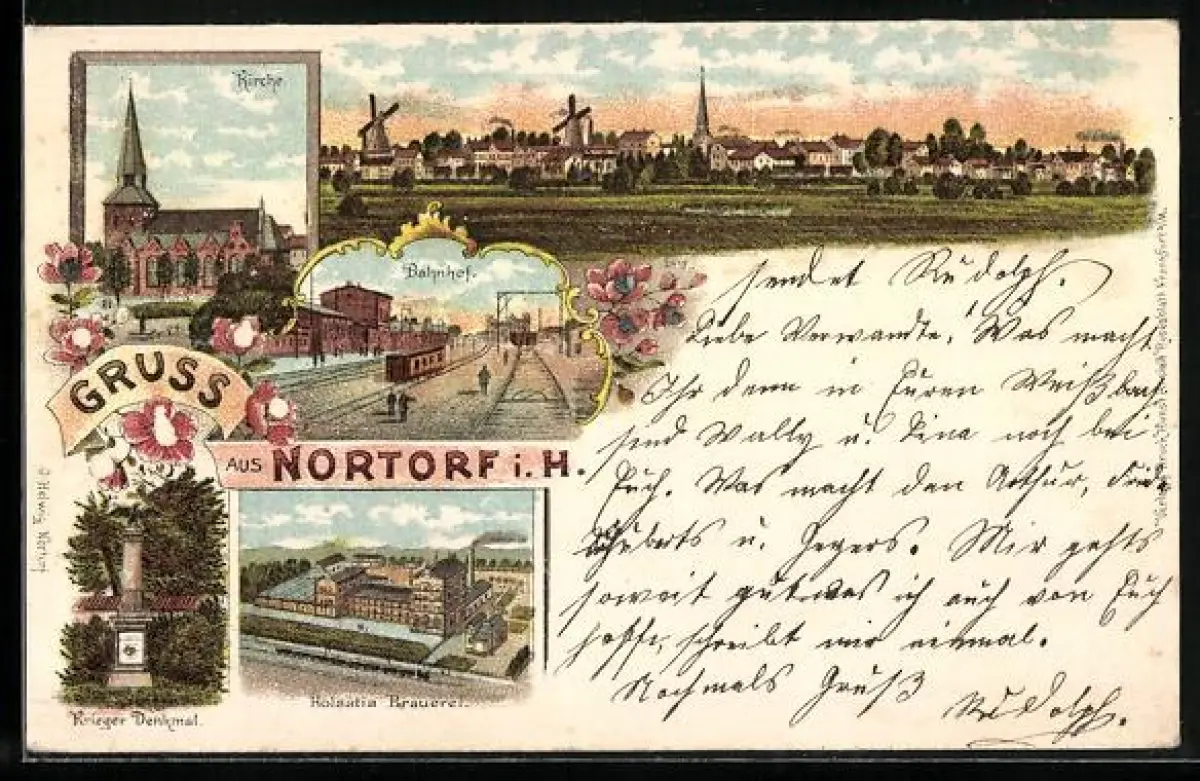 Kirche
Bahnhof.
GRUSS
AUS NORTORF i. H.
Krieger Denkmal.
Holsatia Brauerei.
sendet Rudolph.
Liebe Verwandte! Was macht
Ihr denn in Euren Weißbach
sind Wally u. Tina noch bei
Euch. Was macht den Arthur,
u. Mir gehts
soweit gut was ich auch von Euch
hoffe, schreibt mir einmal.
Nochmals Gruß
Rudolph.